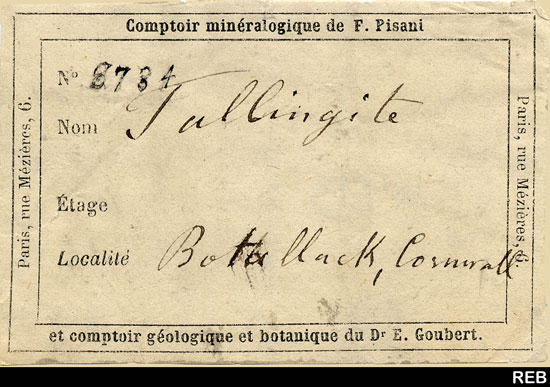 Comptoir minéralogique de F. Pisani
Paris, rue Mézières, 6.
Nº 8734
Nom Tallingite
Étage
Localité Botallack, Cornwall
Paris, rue Mézières, 6.
et comptoir géologique et botanique du Dr E. Goubert.
REB